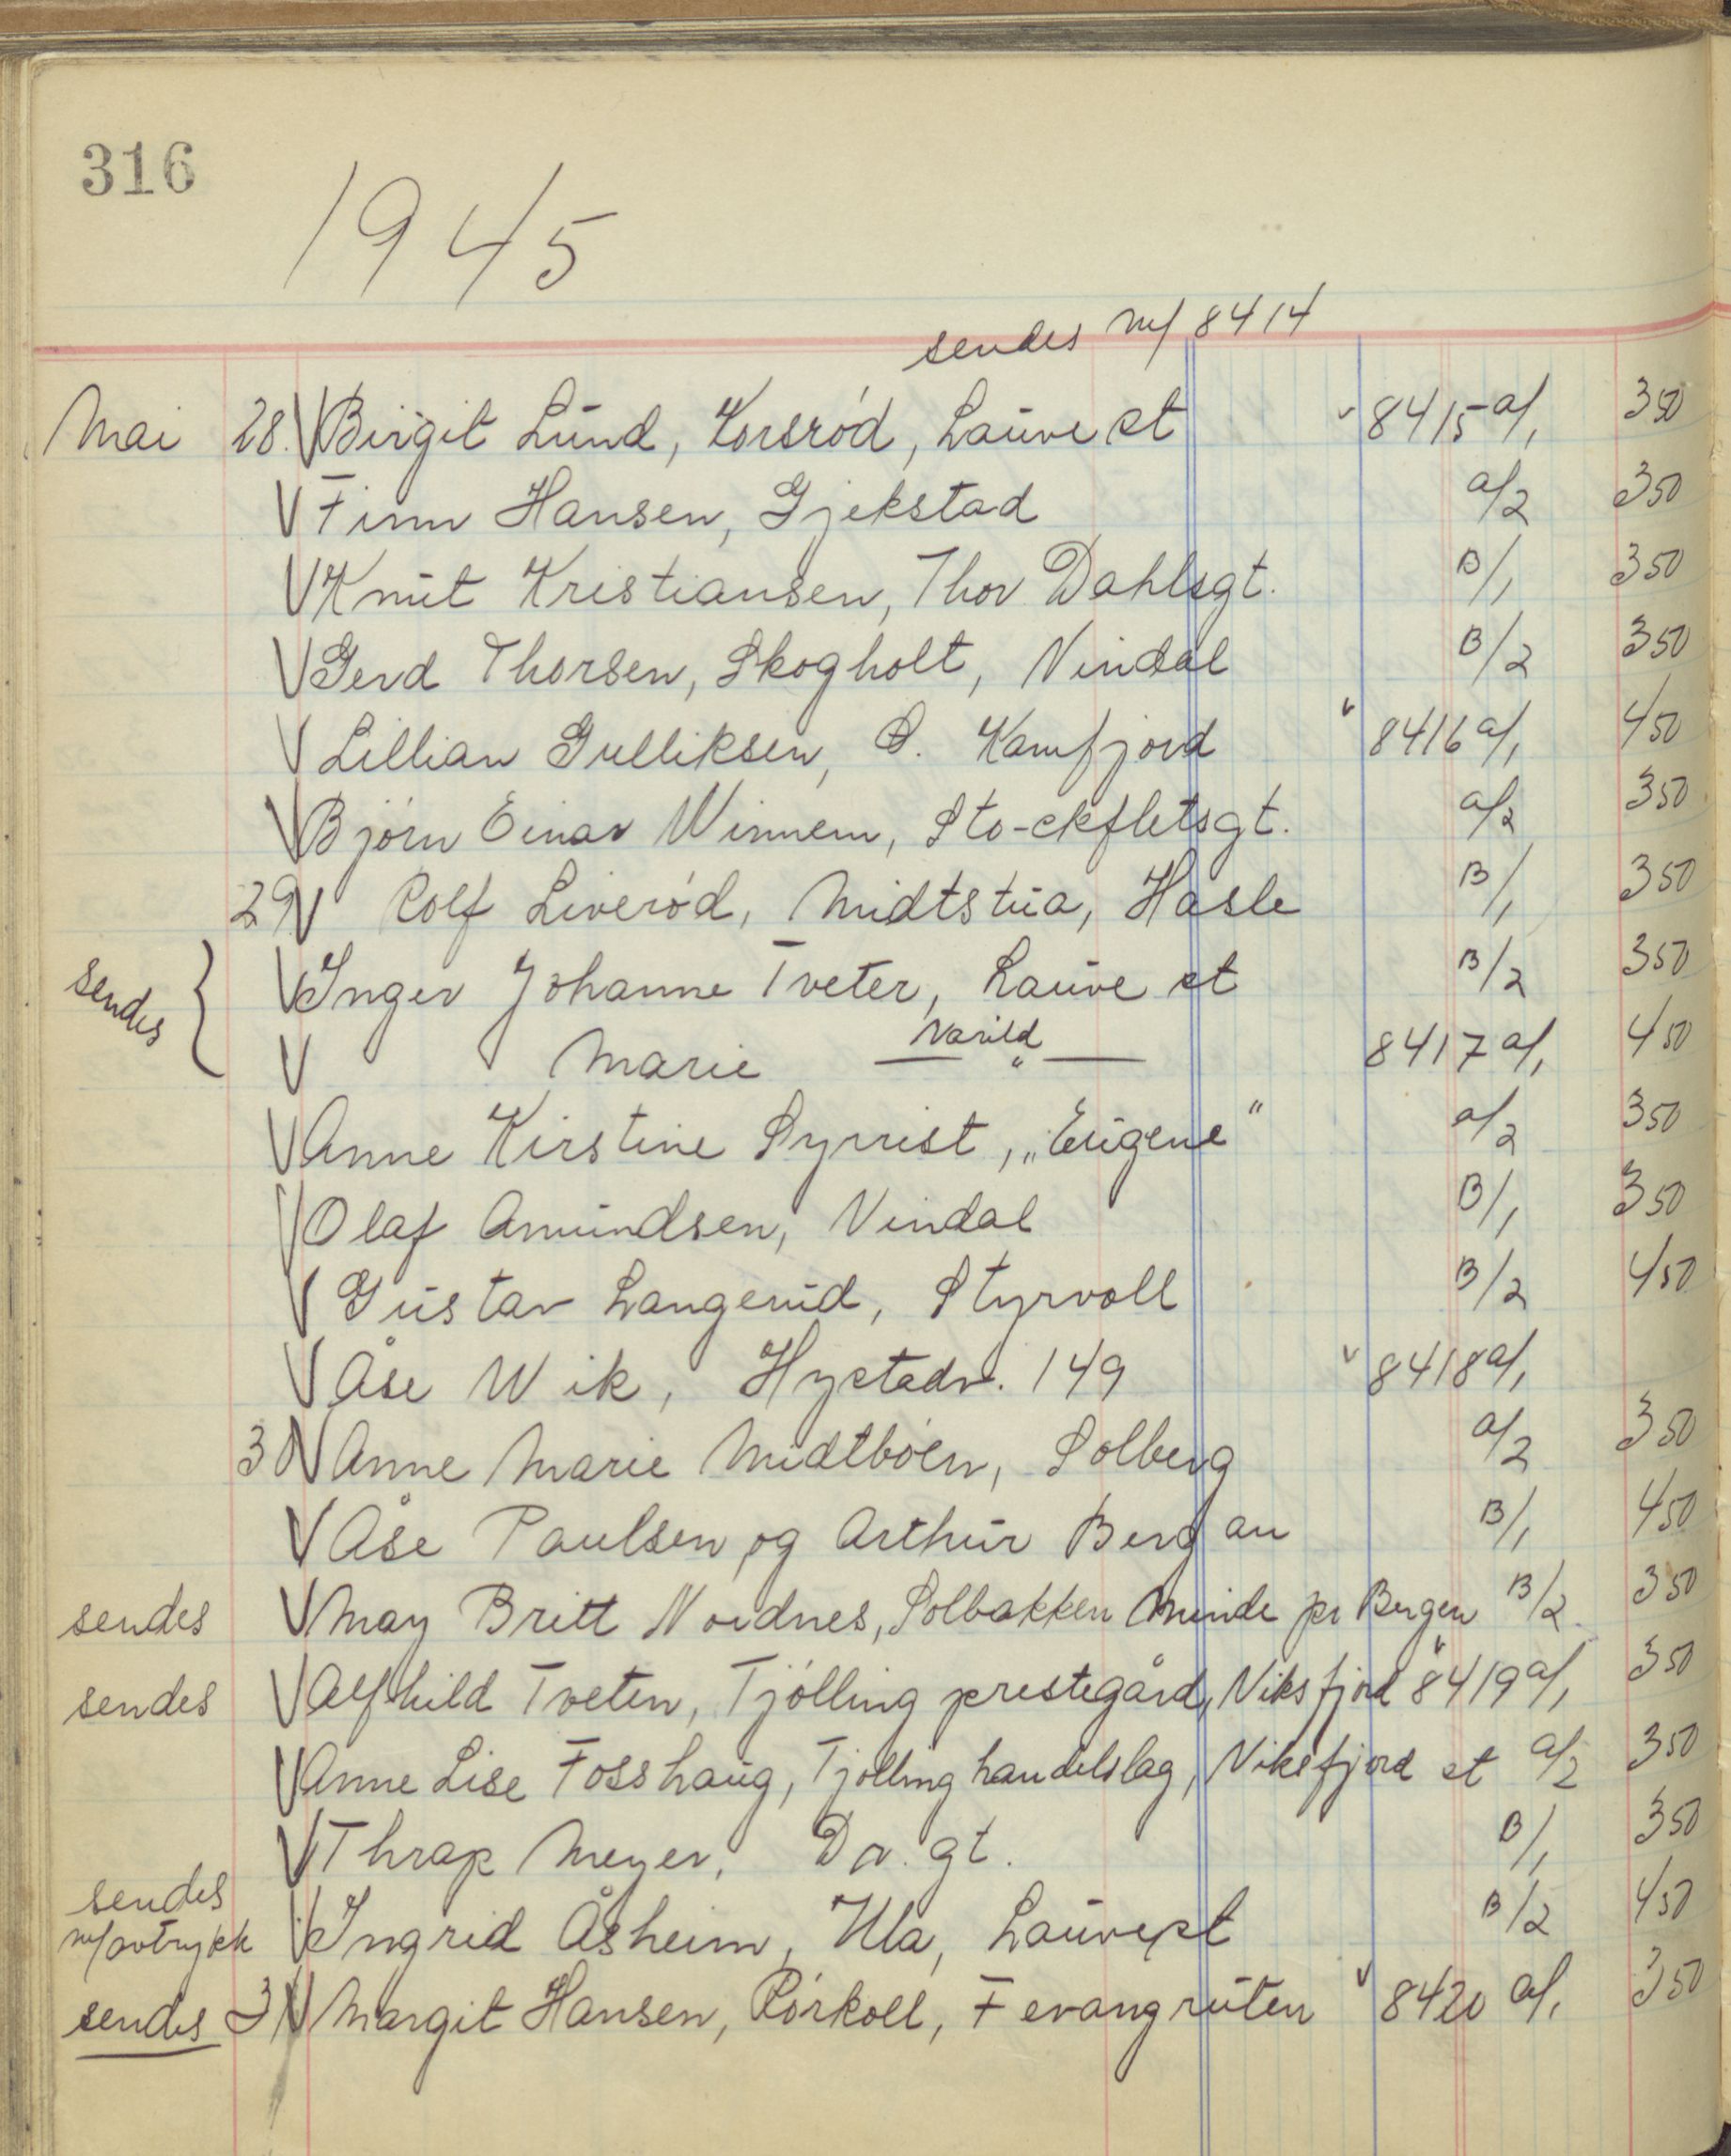 316
1945
sendes m/ 8414
Mai 28. V Birgit Lund, Korsród, Lauve st v 8415 a/1 350
V Finn Hansen, Gjekstad a/2 350
V Knut Kristiansen, Thor Dahlsgt. B/1 350
V Gerd Thorsen, Skogholt, Vindal B/2 350
V Lillian Gulliksen, S. Kamfjord v 8416 a/1 450
V Bjórn Einar Winnem, Sto-ckfletsgt. a/2 350
29 V Rolf Liveród, Midtstua, Hasle B/1 350
sendes { V Inger Johanne Tveter, Lauve st B/2 350
V Marie Narild — " — 8417 a/1 450
V Anne Kirstine Syrrist, „Eugene“ a/2 350
V Olaf Amundsen, Vindal B/1 350
V Gustav Langerud, Styrvoll B/2 450
V Åse Wik, Hystadv. 149 v 8418 a/1
30 V Anne Marie Midtbóen, Solberg a/2 350
V Åse Paulsen og Arthur Bergan B/1 450
sendes V May Britt Nordnes, Solbakken Minde pr Bergen B/2 350
sendes V Alfhild Tveten, Tjólling prestegård, Viksfjord v 8419 a/1 350
V Anne Lise Fosshaug, Tjólling handelslag, Viksfjord st a/2 350
V Thrap Meyer, Dr. gt. B/1 350
sendes
m/avtrykk V Ingrid Åsheim, Ula, Lauve st B/2 450
sendes 31 V Margit Hansen, Rórkoll, Fevangruten v 8420 a/1 350